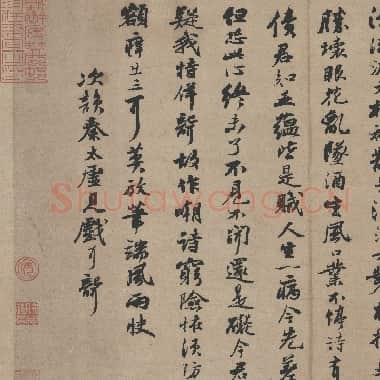 勝壞眼花亂墜酒生風口業不停詩有
債君知五蘊皆是賊人生一病今先差
但恐此心終未了不見不聞還是礙今君
疑我特佯聾故作嘲詩窮險怪須防
額癢出三耳莫放筆端風雨快
次韻秦太虛見戲耳聾
Shufawang.CN